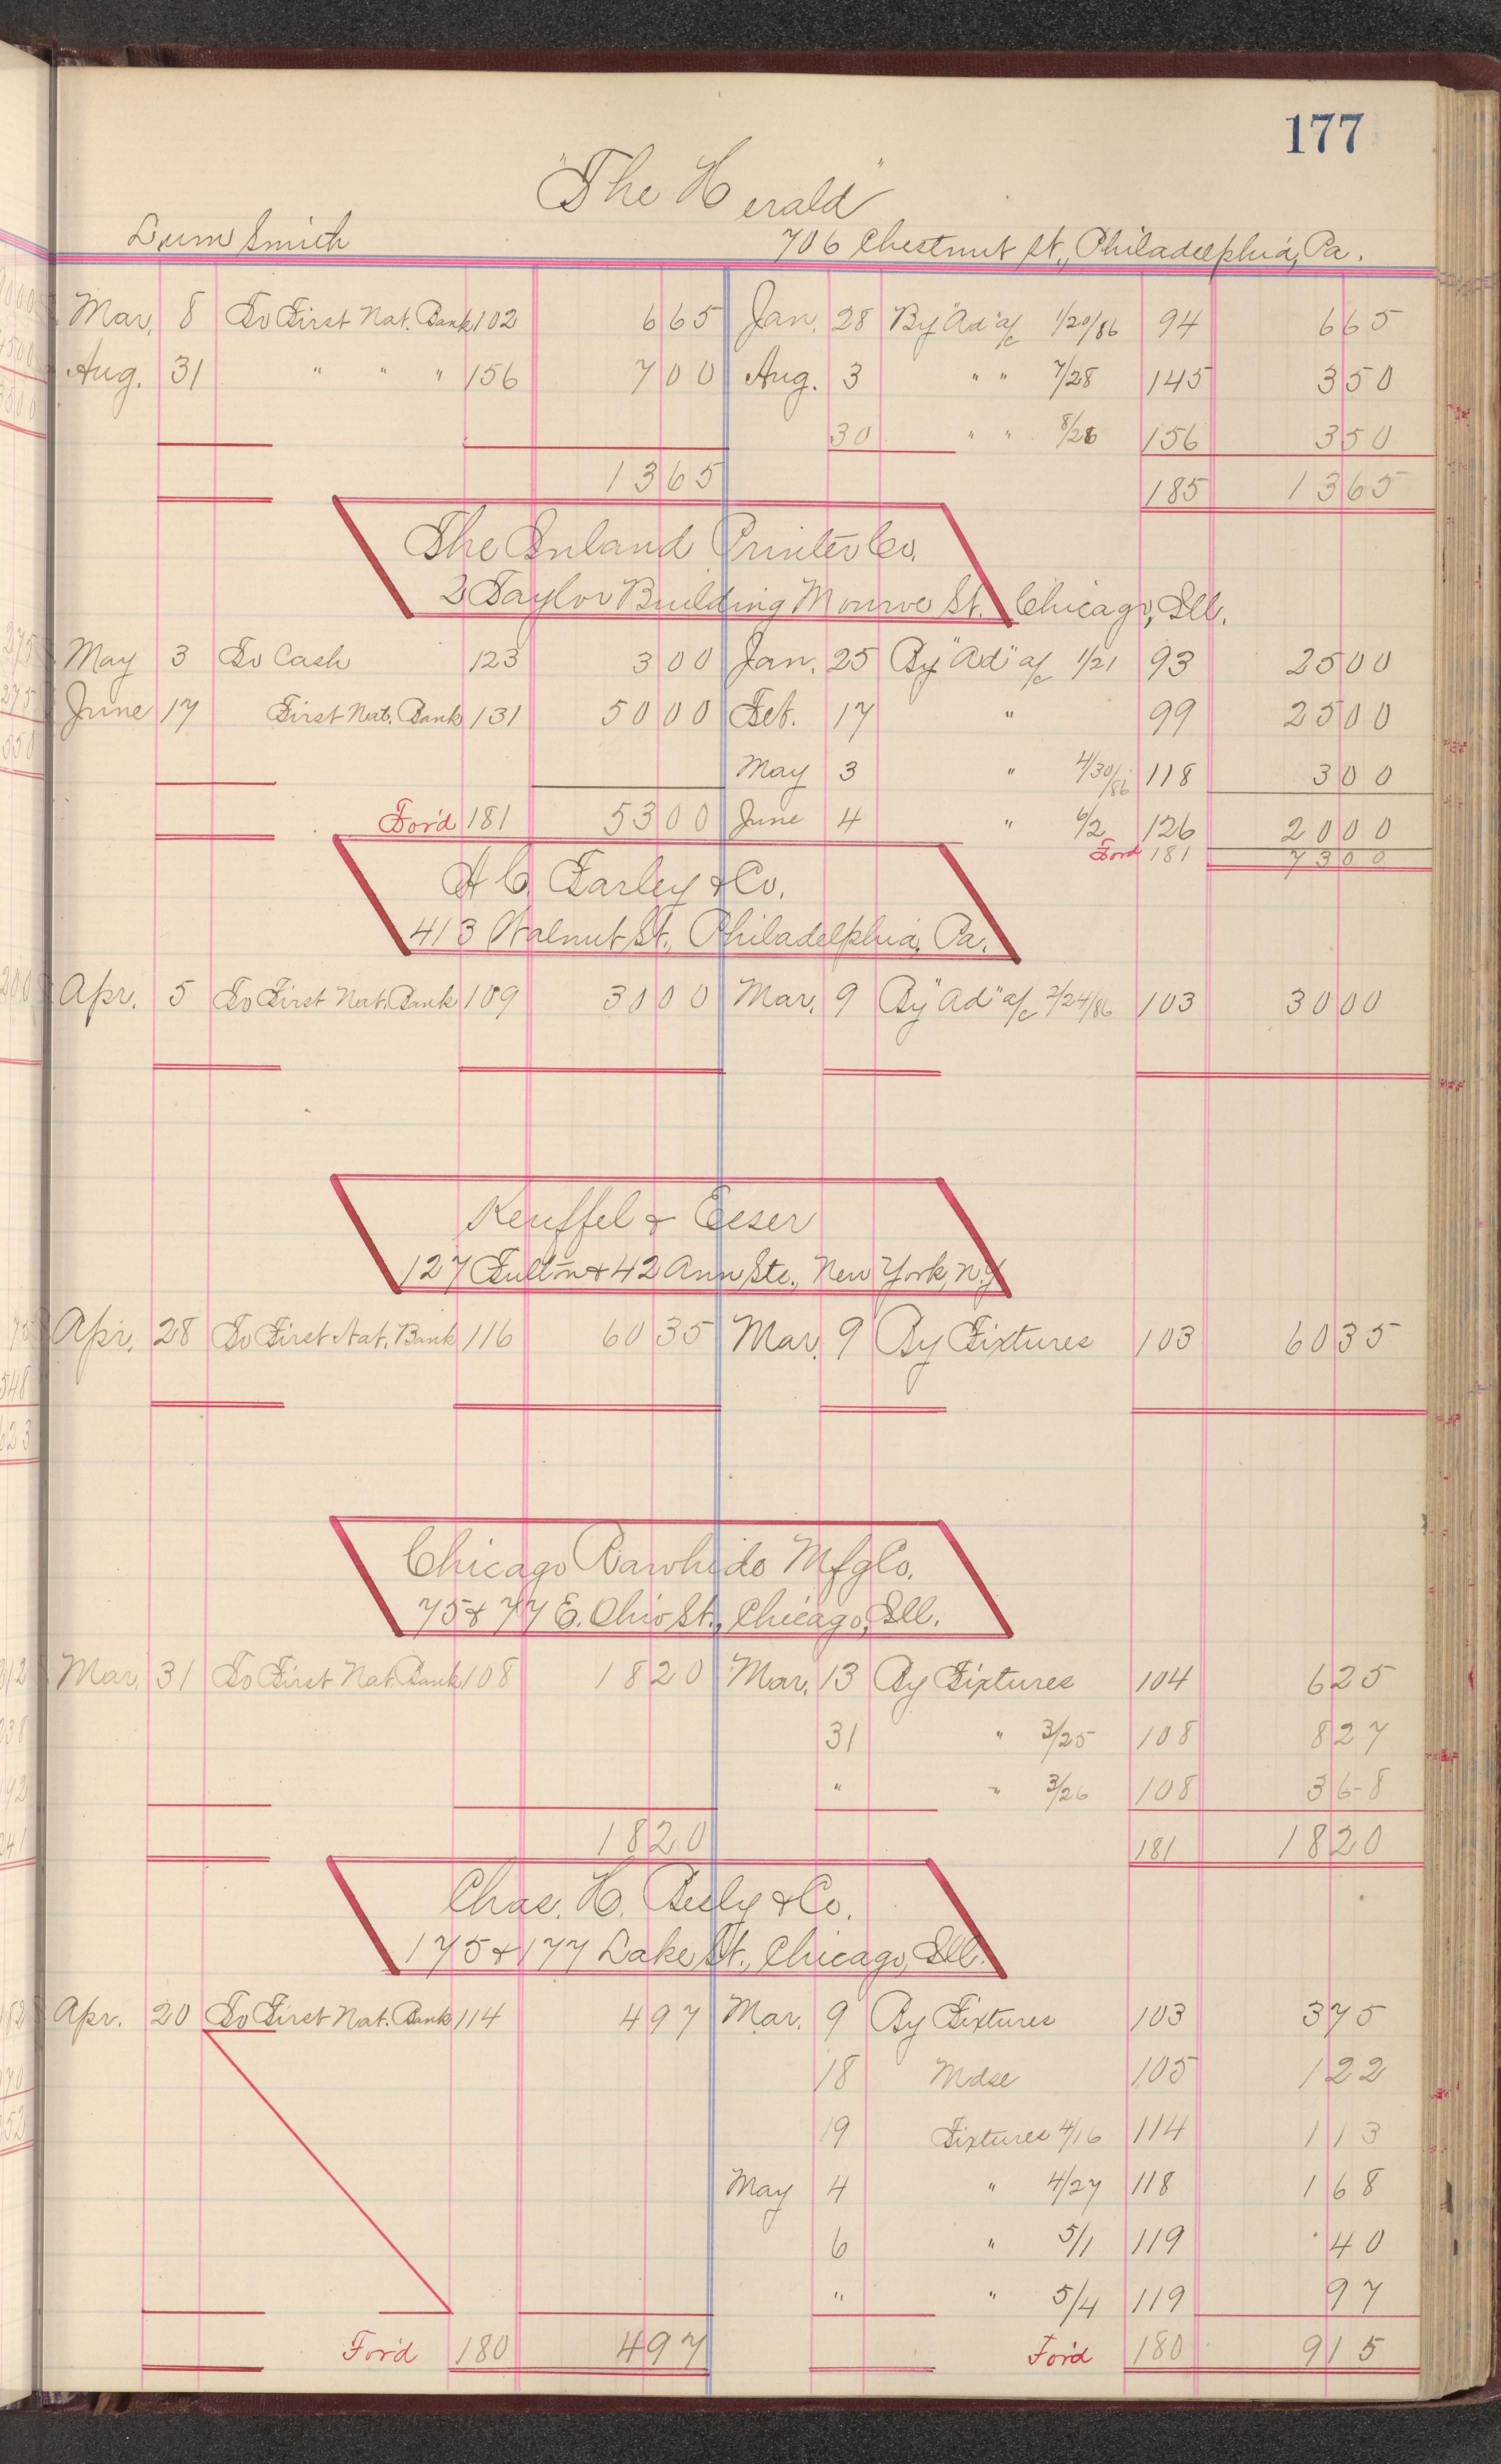 177
"The Herald"
Lum Smith 706 Chestnut St., Philadelphia, Pa.
Mar. 8 To First Nat. Bank 102 6 65 Jan. 28 By "Ad" a/c 1/20/86 94 6 65
Aug. 31 " " " 156 7 00 Aug. 3 " " 7/28 145 3 50
30 " " 8/28 156 3 50
13 65 185 13 65
The Inland Printer Co.
2 Taylor Building Monroe St. Chicago, Ill.
May 3 To Cash 123 3 00 Jan. 25 By "Ad" a/c 1/21 93 25 00
June 17 First Nat. Bank 131 50 00 Feb. 17 " 99 25 00
May 3 " 4/30/86 118 3 00
For'd 181 53 00 June 4 " 6/2 126 20 00
For'd 181 73 00
A C. Farley & Co.
413 Walnut St., Philadelphia, Pa.
Apr. 5 To First Nat. Bank 109 30 00 Mar. 9 By "Ad" a/c 2/24/86 103 30 00
Keuffel & Esser
127 Fulton & 42 Ann Sts., New York, N.Y.
Apr. 28 To First Nat. Bank 116 60 35 Mar. 9 By Fixtures 103 60 35
Chicago Rawhide Mfg Co.
75 & 77 E. Ohio St., Chicago, Ill.
Mar. 31 To First Nat. Bank 108 18 20 Mar. 13 By Fixtures 104 6 25
31 " 3/25 108 8 27
" " 3/26 108 3 68
18 20 181 18 20
Chas. H. Besly & Co.
175 & 177 Lake St., Chicago, Ill.
Apr. 20 To First Nat. Bank 114 4 97 Mar. 9 By Fixtures 103 3 75
18 Mdse 105 1 22
19 Fixtures 4/16 114 1 13
May 4 " 4/27 118 1 68
6 " 5/1 119 40
" " 5/4 119 97
For'd 180 4 97 For'd 180 9 15